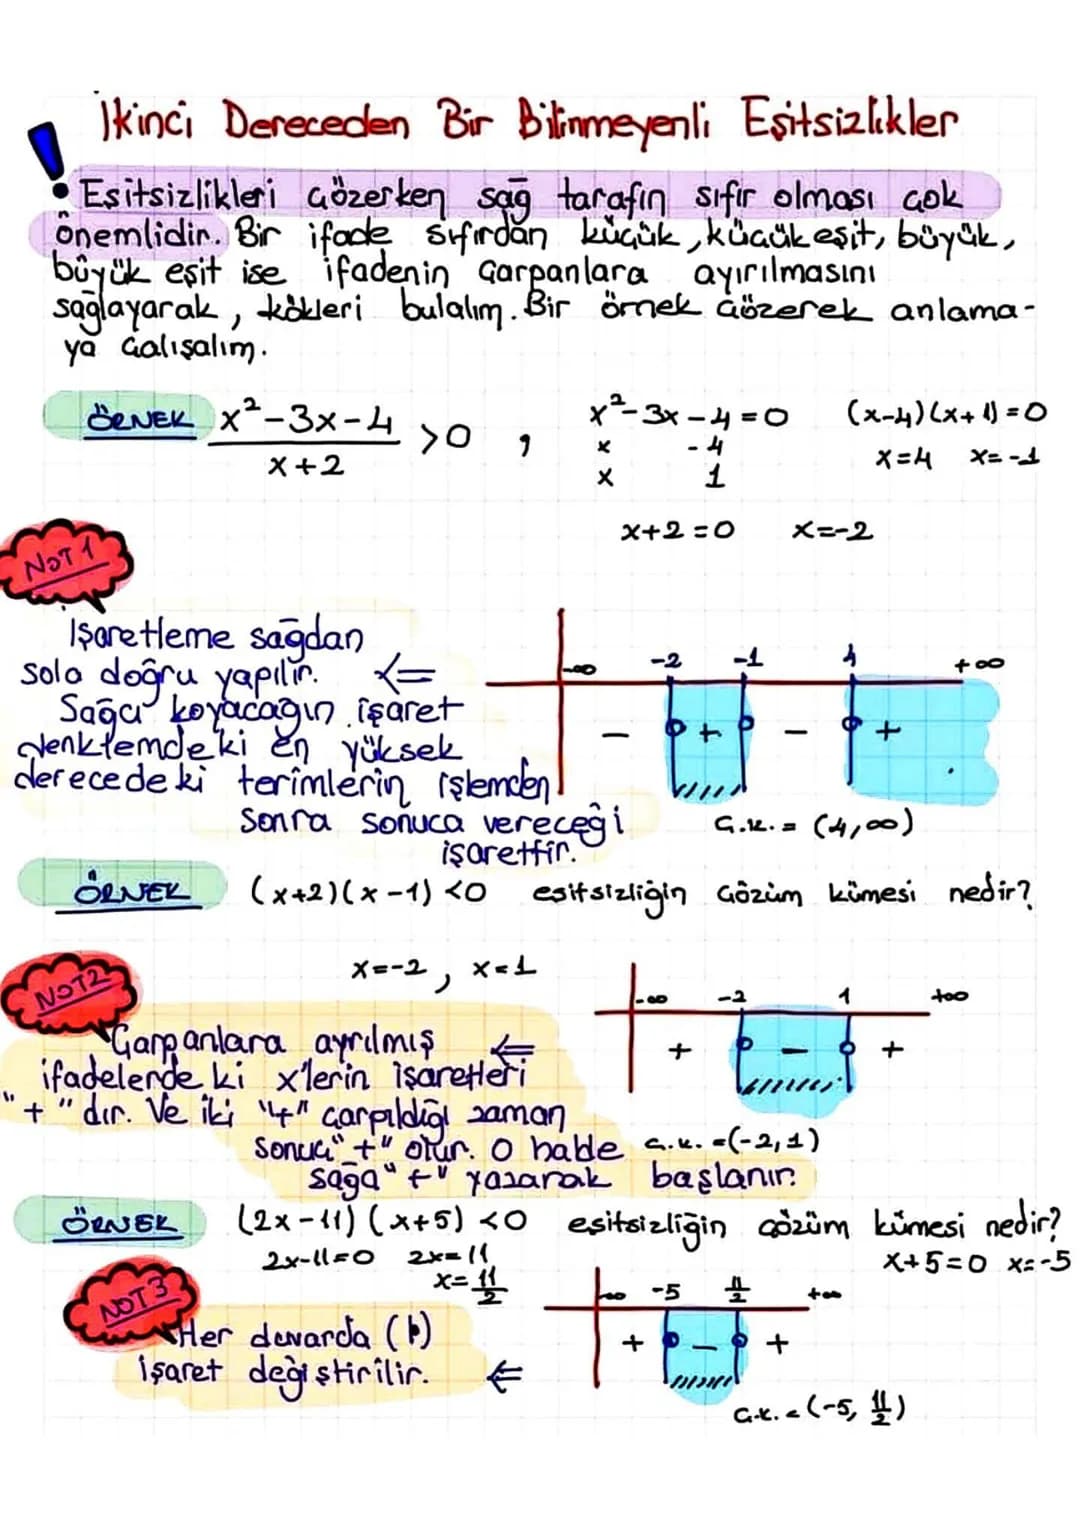 İkinci Dereceden Bir Bilinmeyenli Eşitsizlikler
! Eşitsizlikleri çözerken sağ tarafın sıfır olması çok
önemlidir. Bir ifade sıfırdan küçük, küçük eşit, büyük,
büyük eşit ise ifadenin çarpanlara ayırılmasını
sağlayarak, kökleri bulalım. Bir örnek çözerek anlama-
ya çalışalım.
ÖRNEK x²-3x-4 / x+2 >0 , x²-3x-4=0 (x-4)(x+1)=0
x -4 x=4 x=-1
x 1
x+2=0 x=-2
NOT 1
İşaretleme sağdan
sola doğru yapılır. ⇐
Sağa koyacağın işaret
denklemdeki en yüksek
derecedeki terimlerin işlemden
sonra sonuca vereceği
işarettir.
-∞ -2 -1 4 +∞
- + - +
Ç.K. = (4,∞)
ÖRNEK (x+2)(x-1)<0 eşitsizliğin çözüm kümesi nedir?
x=-2, x=1
NOT2
Çarpanlara ayrılmış ⇐
ifadelerde ki x'lerin işaretleri
"+" dır. Ve iki "+" çarpıldığı zaman
sonuç "+" olur. O halde
sağa "+" yazarak başlanır.
-∞ -2 1 +∞
+ - +
Ç.K. =(-2,1)
ÖRNEK (2x-11)(x+5)<0 eşitsizliğin çözüm kümesi nedir?
2x-11=0 2x=11 x+5=0 x=-5
x=11/2
NOT 3
Her duvarda (b)
işaret değiştirilir. ⇐
-∞ -5 11/2 +∞
+ - +
Ç.K. =(-5, 11/2)